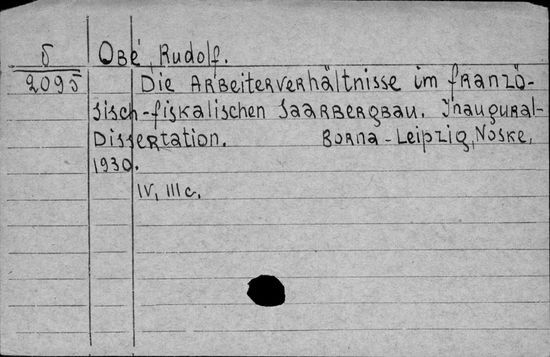 δ Obé, Rudolf.
2095 Die Arbeiterverhältnisse im franzö-
sisch-fiskalischen Saarbergbau. Inaugural-
Dissertation. Borna-Leipzig, Noske,
1930.
IV, III c.